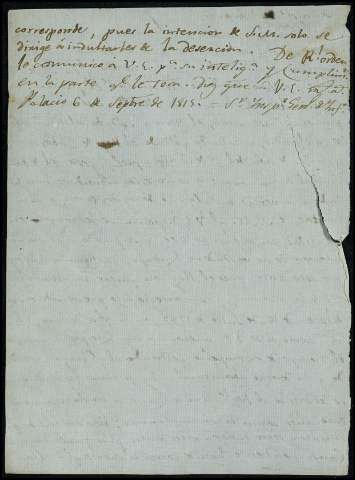 corresponde, pues la intencion de S.M. solo se
dirige á indultarlos de la desercion. De Rl orden
lo comunico á V.E. pa su intelig.a y cumplim.to
en la parte qe le toca. Dios gue á V.E. m.s a.s
Palacio 6 de Septre de 1815. = Sr Insp.r Gen.l de Inf.a